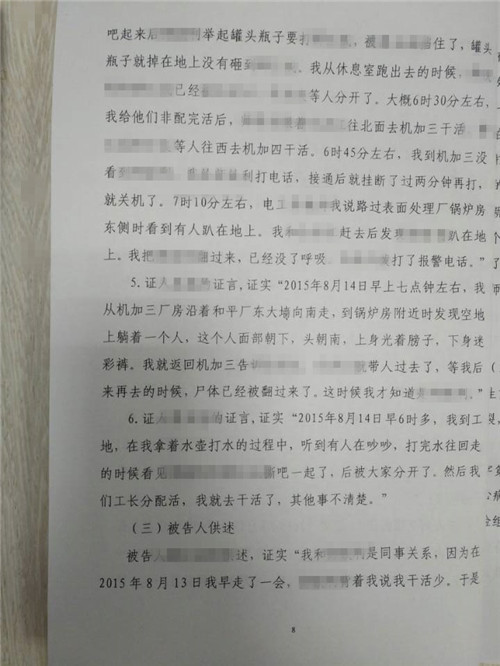 吧起来后 利举起罐头瓶子要打 ，被 住了，罐头
瓶子就掉在地上没有砸到 。我从休息室跑出去的时候，
已经 等人分开了。大概6时30分左右，
我给他们非配完活后， 往北面去机加三干活
等人往西去机加四干活。6时45分左右，我到机加三没
看到 利打电话，接通后就挂断了过两分钟再打，
就关机了。7时10分左右，电工 我说路过表面处理厂锅炉房
东侧时看到有人趴在地上。我和 赶去后发现 趴在地
上。我把 翻过来，已经没了呼吸。 打了报警电话。”
5.证人 证言,证实“2015年8月14日早上七点钟左右，我
从机加三厂房沿着和平厂东大墙向南走，到锅炉房附近时发现空地
上躺着一个人，这个人面部朝下，头朝南，上身光着膀子，下身迷
彩裤。我就返回机加三告 就带人过去了，等我后
来再去的时候，尸体已经被翻过来了。这时候我才知道 。”
6.证人 的证言,证实“2015年8月14日早6时多，我到工
地，在我拿着水壶打水的过程中，听到有人在吵吵，打完水往回走
的时候看见 吧一起了，后被大家分开了。然后我
们工长分配活，我就去干活了，其他事不清楚。”
（三）被告人供述
被告人 述，证实“我和 是同事关系，因为在
2015年8月13日我早走了一会， 着我说我干活少。于是
8